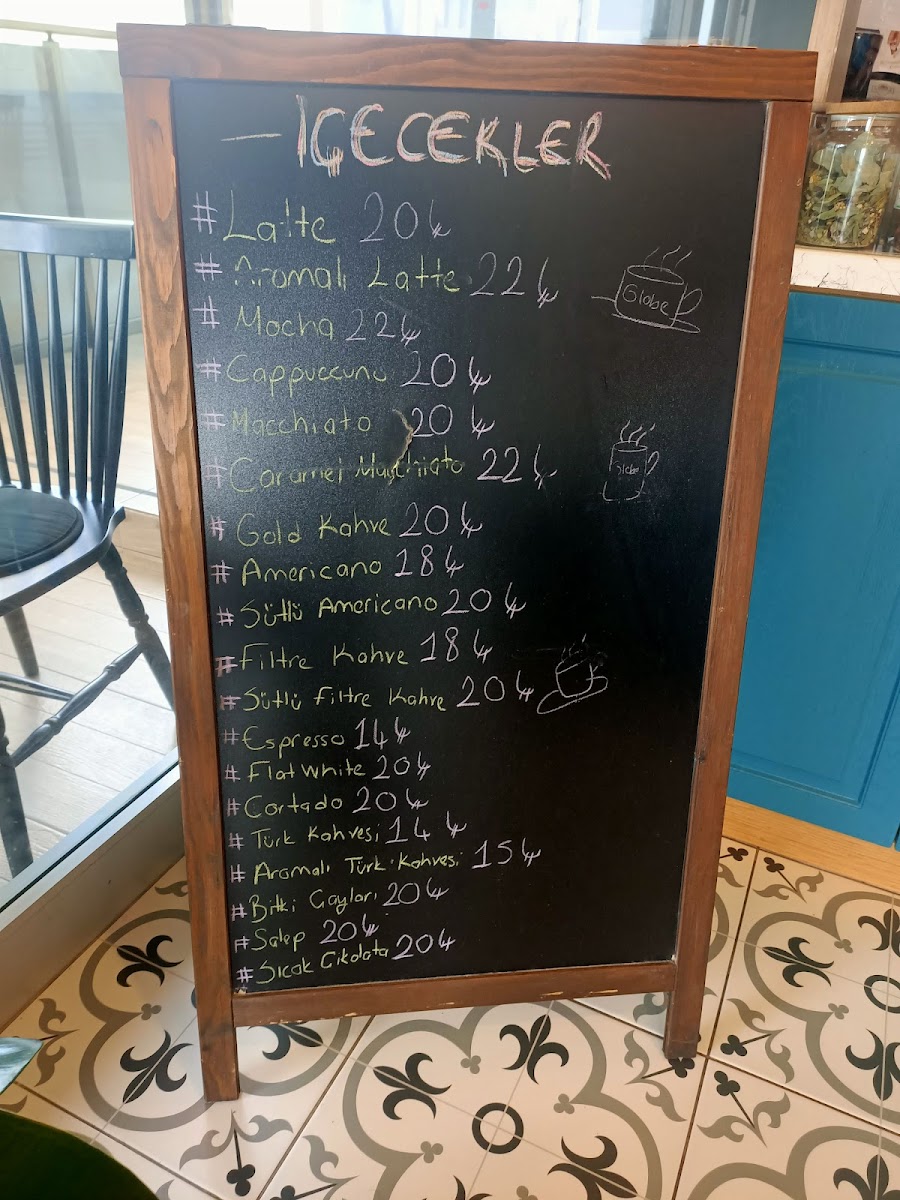 — İÇECEKLER
# Latte 20₺
# Aromalı Latte 22₺
# Mocha 22₺
# Cappuccuno 20₺
# Macchiato 20₺
# Caramel Macchiato 22₺
# Gold Kahve 20₺
# Americano 18₺
# Sütlü Americano 20₺
# Filtre Kahve 18₺
# Sütlü Filtre Kahve 20₺
# Espresso 14₺
# Flat white 20₺
# Cortado 20₺
# Türk Kahvesi 14₺
# Aromalı Türk Kahvesi 15₺
# Bitki Çayları 20₺
# Salep 20₺
# Sıcak Çikolata 20₺
Globe
Globe